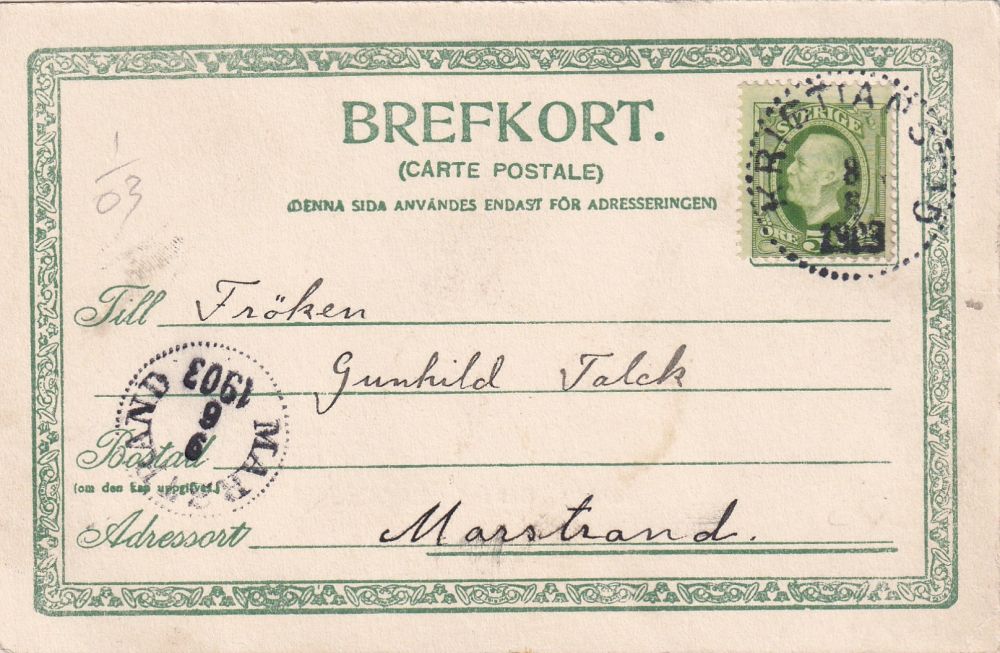 BREFKORT.
(CARTE POSTALE)
(DENNA SIDA ANVÄNDES ENDAST FÖR ADRESSERINGEN)
1/03
SVERIGE
ÖRE 5
KRISTIANSTAD
8
1903
Till Fröken
Gunhild Talck
MARSTRAND
1903
Bostad
(om den kan uppgifvas.)
Adressort Marstrand.